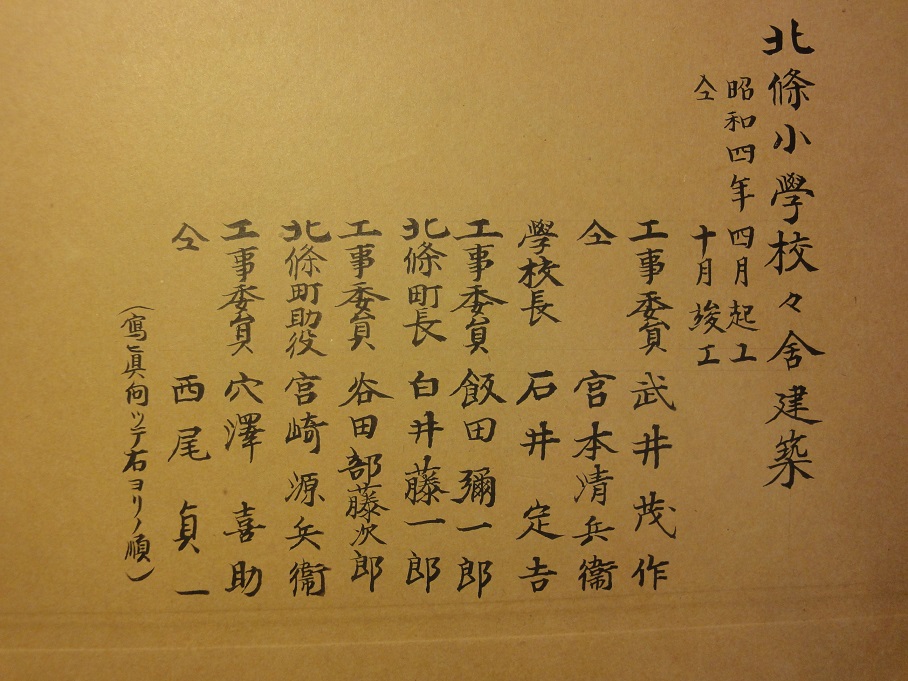 北條小學校々舍建築
昭和四年四月起工
仝　十月竣工
工事委員　武井茂作
仝　宮本清兵衞
學校長　石井定吉
工事委員　飯田彌一郎
北條町長　白井藤一郎
工事委員　谷田部藤次郎
北條町助役　宮崎源兵衞
工事委員　穴澤喜助
仝　西尾貞一
（寫眞向ッテ右ヨリノ順）